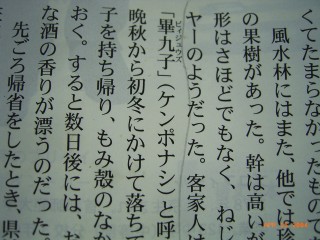 くてたまらなかったもので
風水林にはまた、他では珍
の果樹があった。幹は高いが
形はさほどでもなく、ねじ
ヤーのようだった。客家人は
「畢九子」(ケンポナシ)と呼
ビィジュウズ
晩秋から初冬にかけて落ちて
子を持ち帰り、もみ殻のなか
おく。すると数日後には、お
な酒の香りが漂うのだった。
先ごろ帰省をしたとき、県